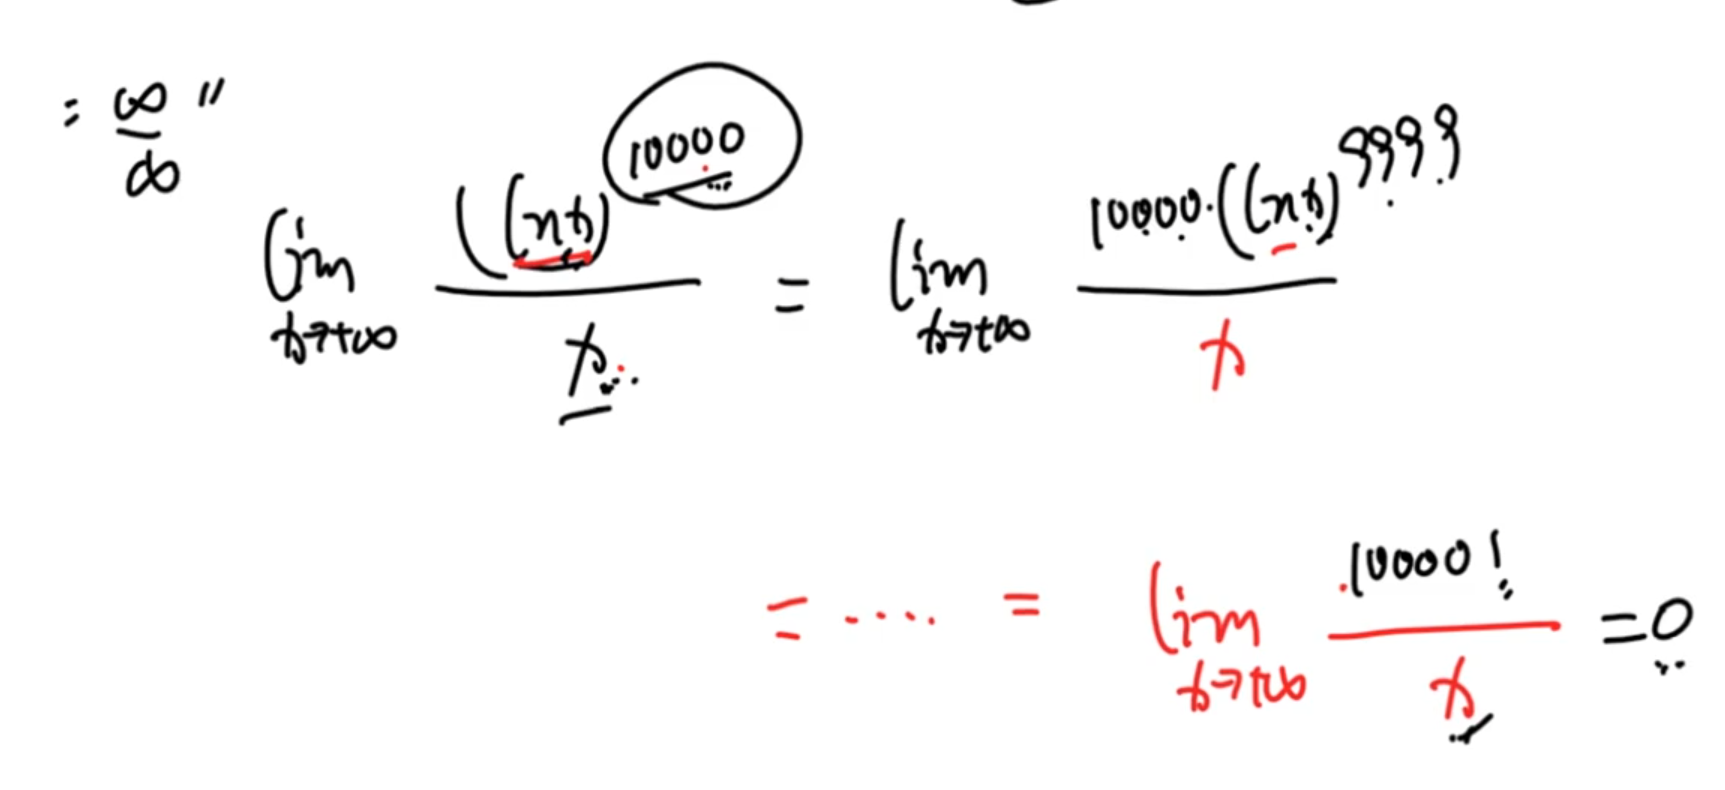 = ∞/∞ "
lim x→+∞ (ln x)^10000 / x = lim x→+∞ 10000·(ln x)^9999 / x
= .... = lim x→+∞ 10000! / x = 0